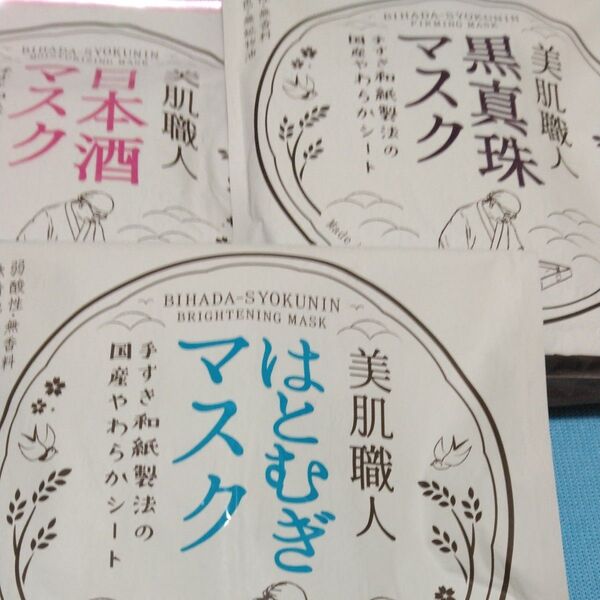 BIHADA-SYOKUNIN
MOISTURIZING MASK
美肌職人
日本酒
マスク
BIHADA-SYOKUNIN
FIRMING MASK
美肌職人
黒真珠
マスク
手すき和紙製法の
国産やわらかシート
Made
弱酸性・無香料
BIHADA-SYOKUNIN
BRIGHTENING MASK
美肌職人
はとむぎ
マスク
手すき和紙製法の
国産やわらかシート